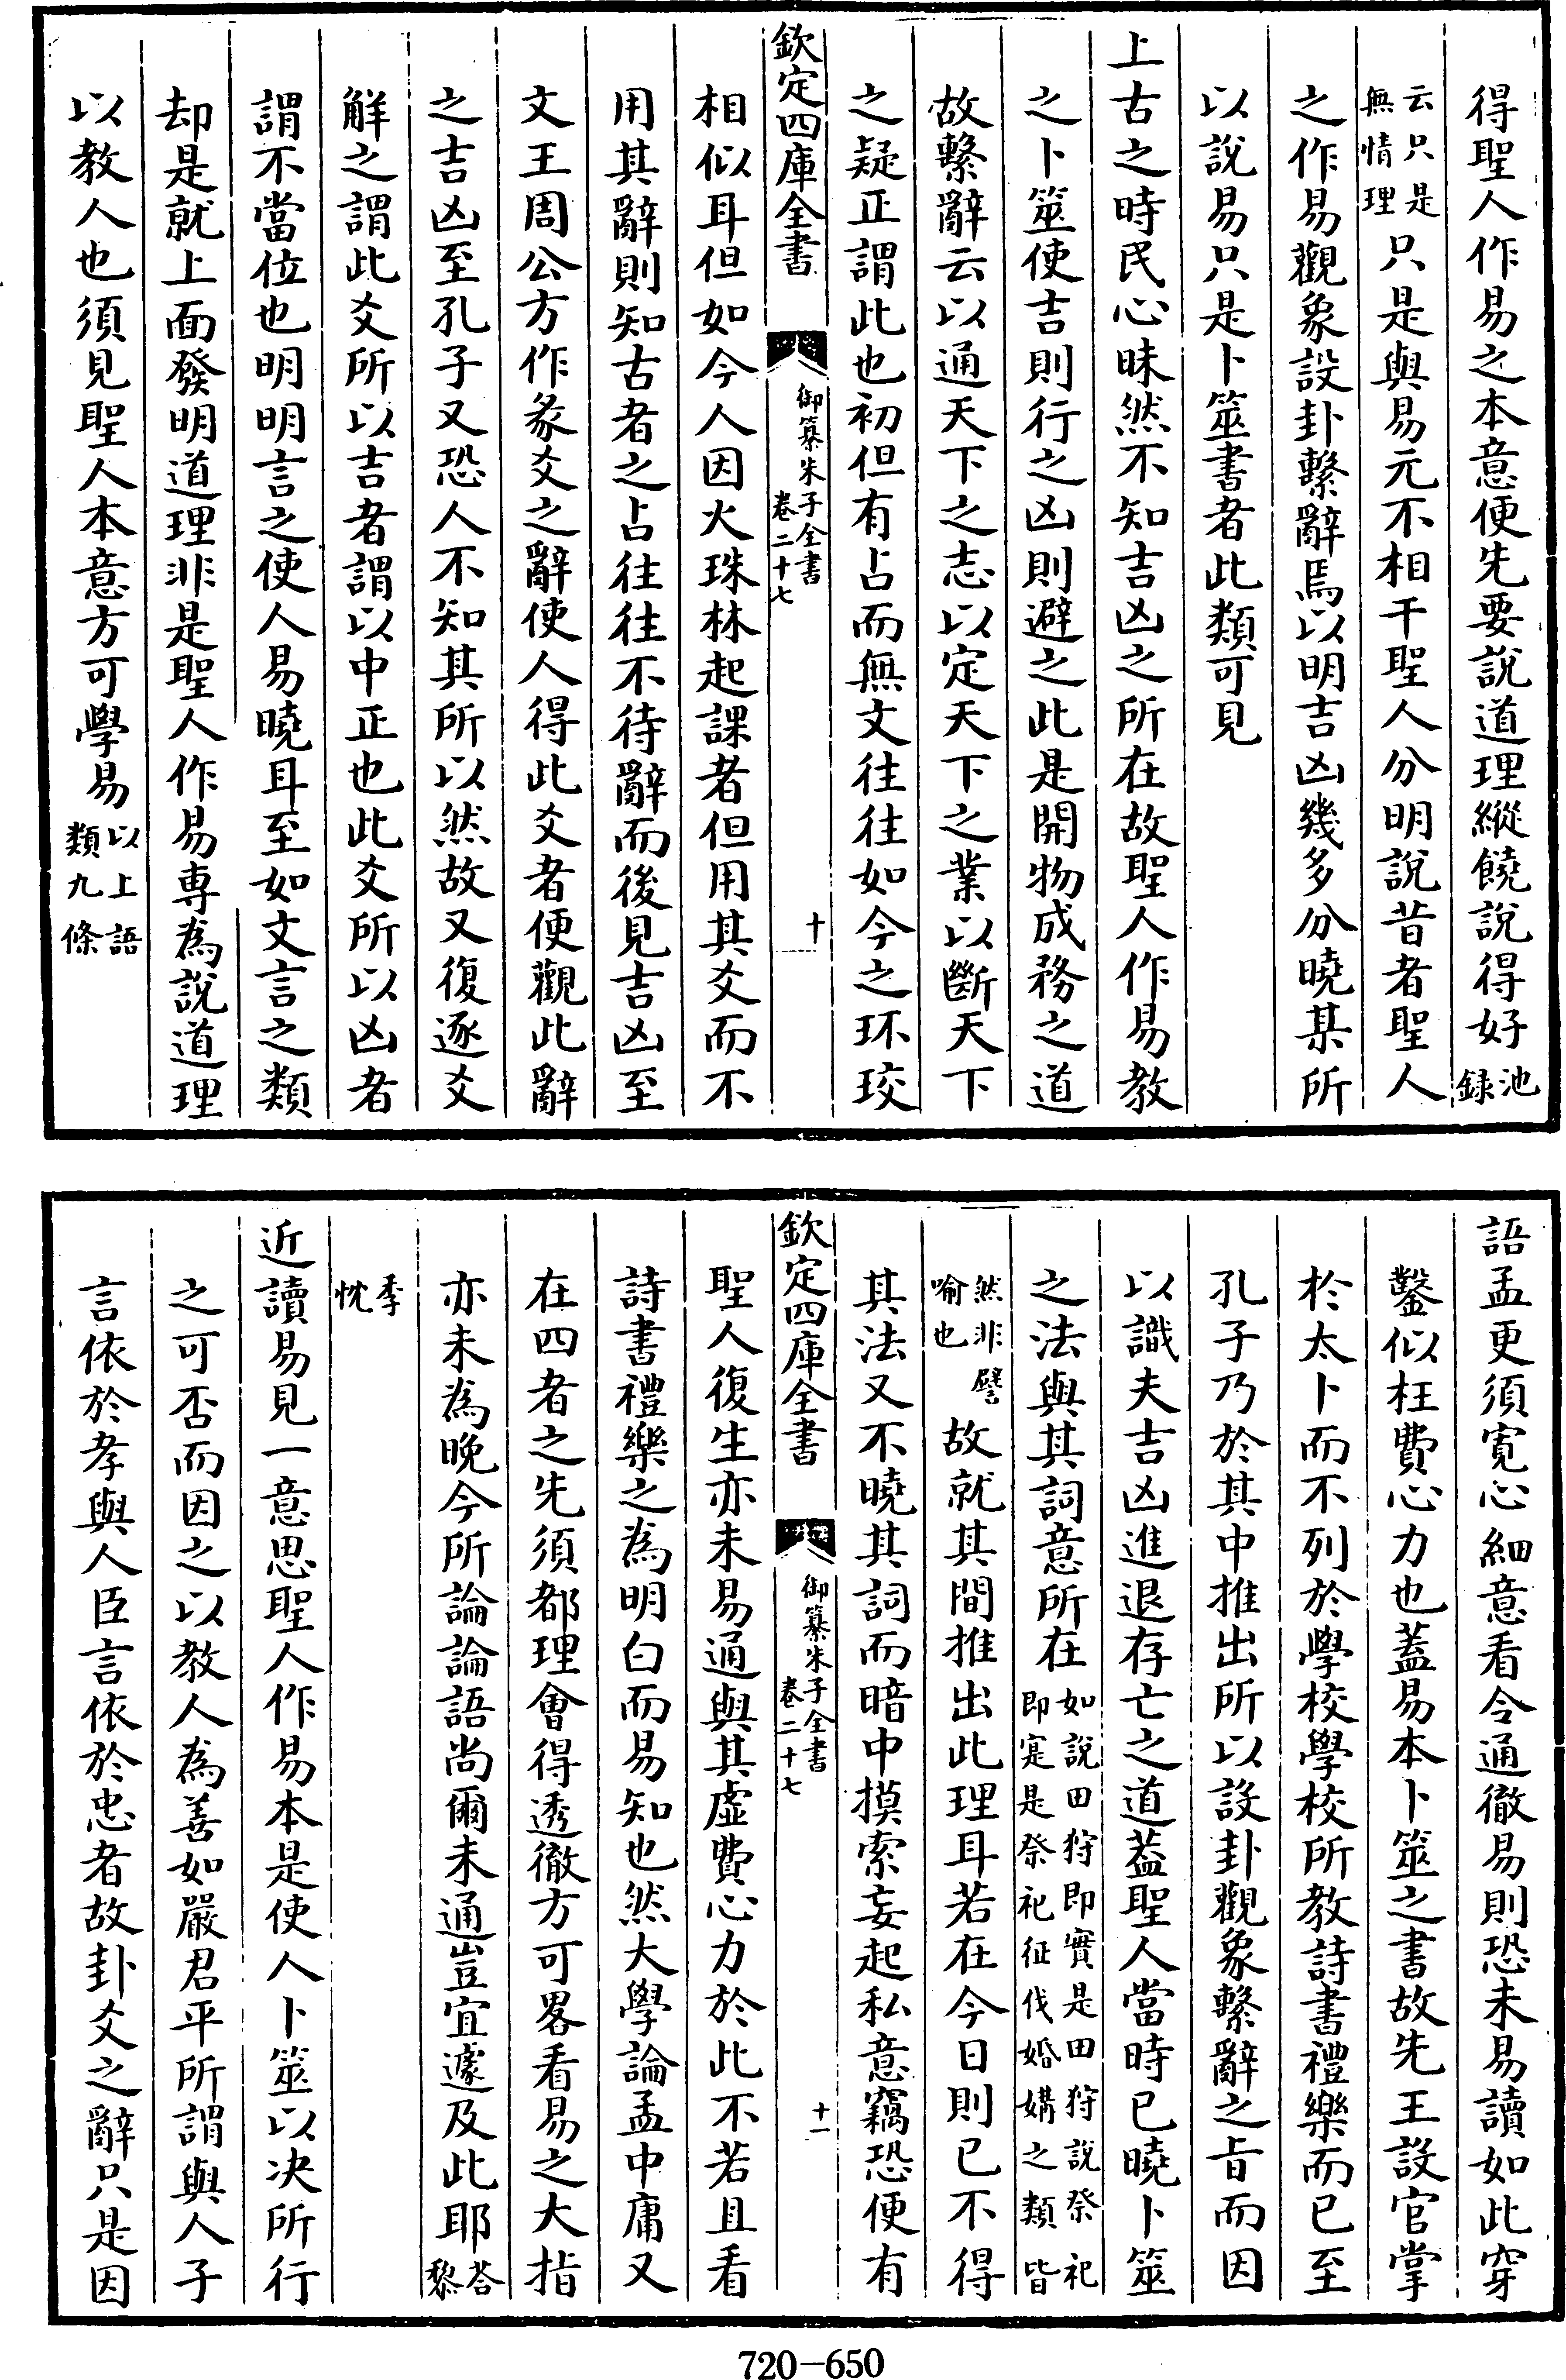 得聖人作易之本意便先要說道理縱饒說得好池録
云只是無情理只是與易元不相干聖人分明說昔者聖人
之作易觀象設卦繫辭焉以明吉凶幾多分曉某所
以說易只是卜筮書者此類可見
上古之時民心昧然不知吉凶之所在故聖人作易教
之卜筮使吉則行之凶則避之此是開物成務之道
故繫辭云以通天下之志以定天下之業以斷天下
之疑正謂此也初但有占而無文往往如今之环珓
欽定四庫全書 御纂朱子全書卷二十七 十
相似耳但如今人因火珠林起課者但用其爻而不
用其辭則知古者之占往往不待辭而後見吉凶至
文王周公方作彖爻之辭使人得此爻者便觀此辭
之吉凶至孔子又恐人不知其所以然故又復逐爻
解之謂此爻所以吉者謂以中正也此爻所以凶者
謂不當位也明明言之使人易曉耳至如文言之類
却是就上面發明道理非是聖人作易専為說道理
以教人也須見聖人本意方可學易以上語類九條
語孟更須寛心細意看令通徹易則恐未易讀如此穿
鑿似枉費心力也蓋易本卜筮之書故先王設官掌
於太卜而不列於學校學校所教詩書禮樂而已至
孔子乃於其中推出所以設卦觀象繫辭之旨而因
以識夫吉凶進退存亡之道葢聖人當時已曉卜筮
之法與其詞意所在如說田狩即實是田狩說祭祀即寔是祭祀征伐婚媾之類皆
然非譬喻也故就其間推出此理耳若在今日則已不得
其法又不曉其詞而暗中摸索妄起私意竊恐便有
欽定四庫全書 御纂朱子全書卷二十七 十一
聖人復生亦未易通與其虚費心力於此不若且看
詩書禮樂之為明白而易知也然大學論孟中庸又
在四者之先須都理會得透徹方可畧看易之大指
亦未為晚今所論論語尚爾未通豈宜遽及此耶荅黎
季忱
近讀易見一意思聖人作易本是使人卜筮以决所行
之可否而因之以教人為善如嚴君平所謂與人子
言依於孝與人臣言依於忠者故卦爻之辭只是因
720—650